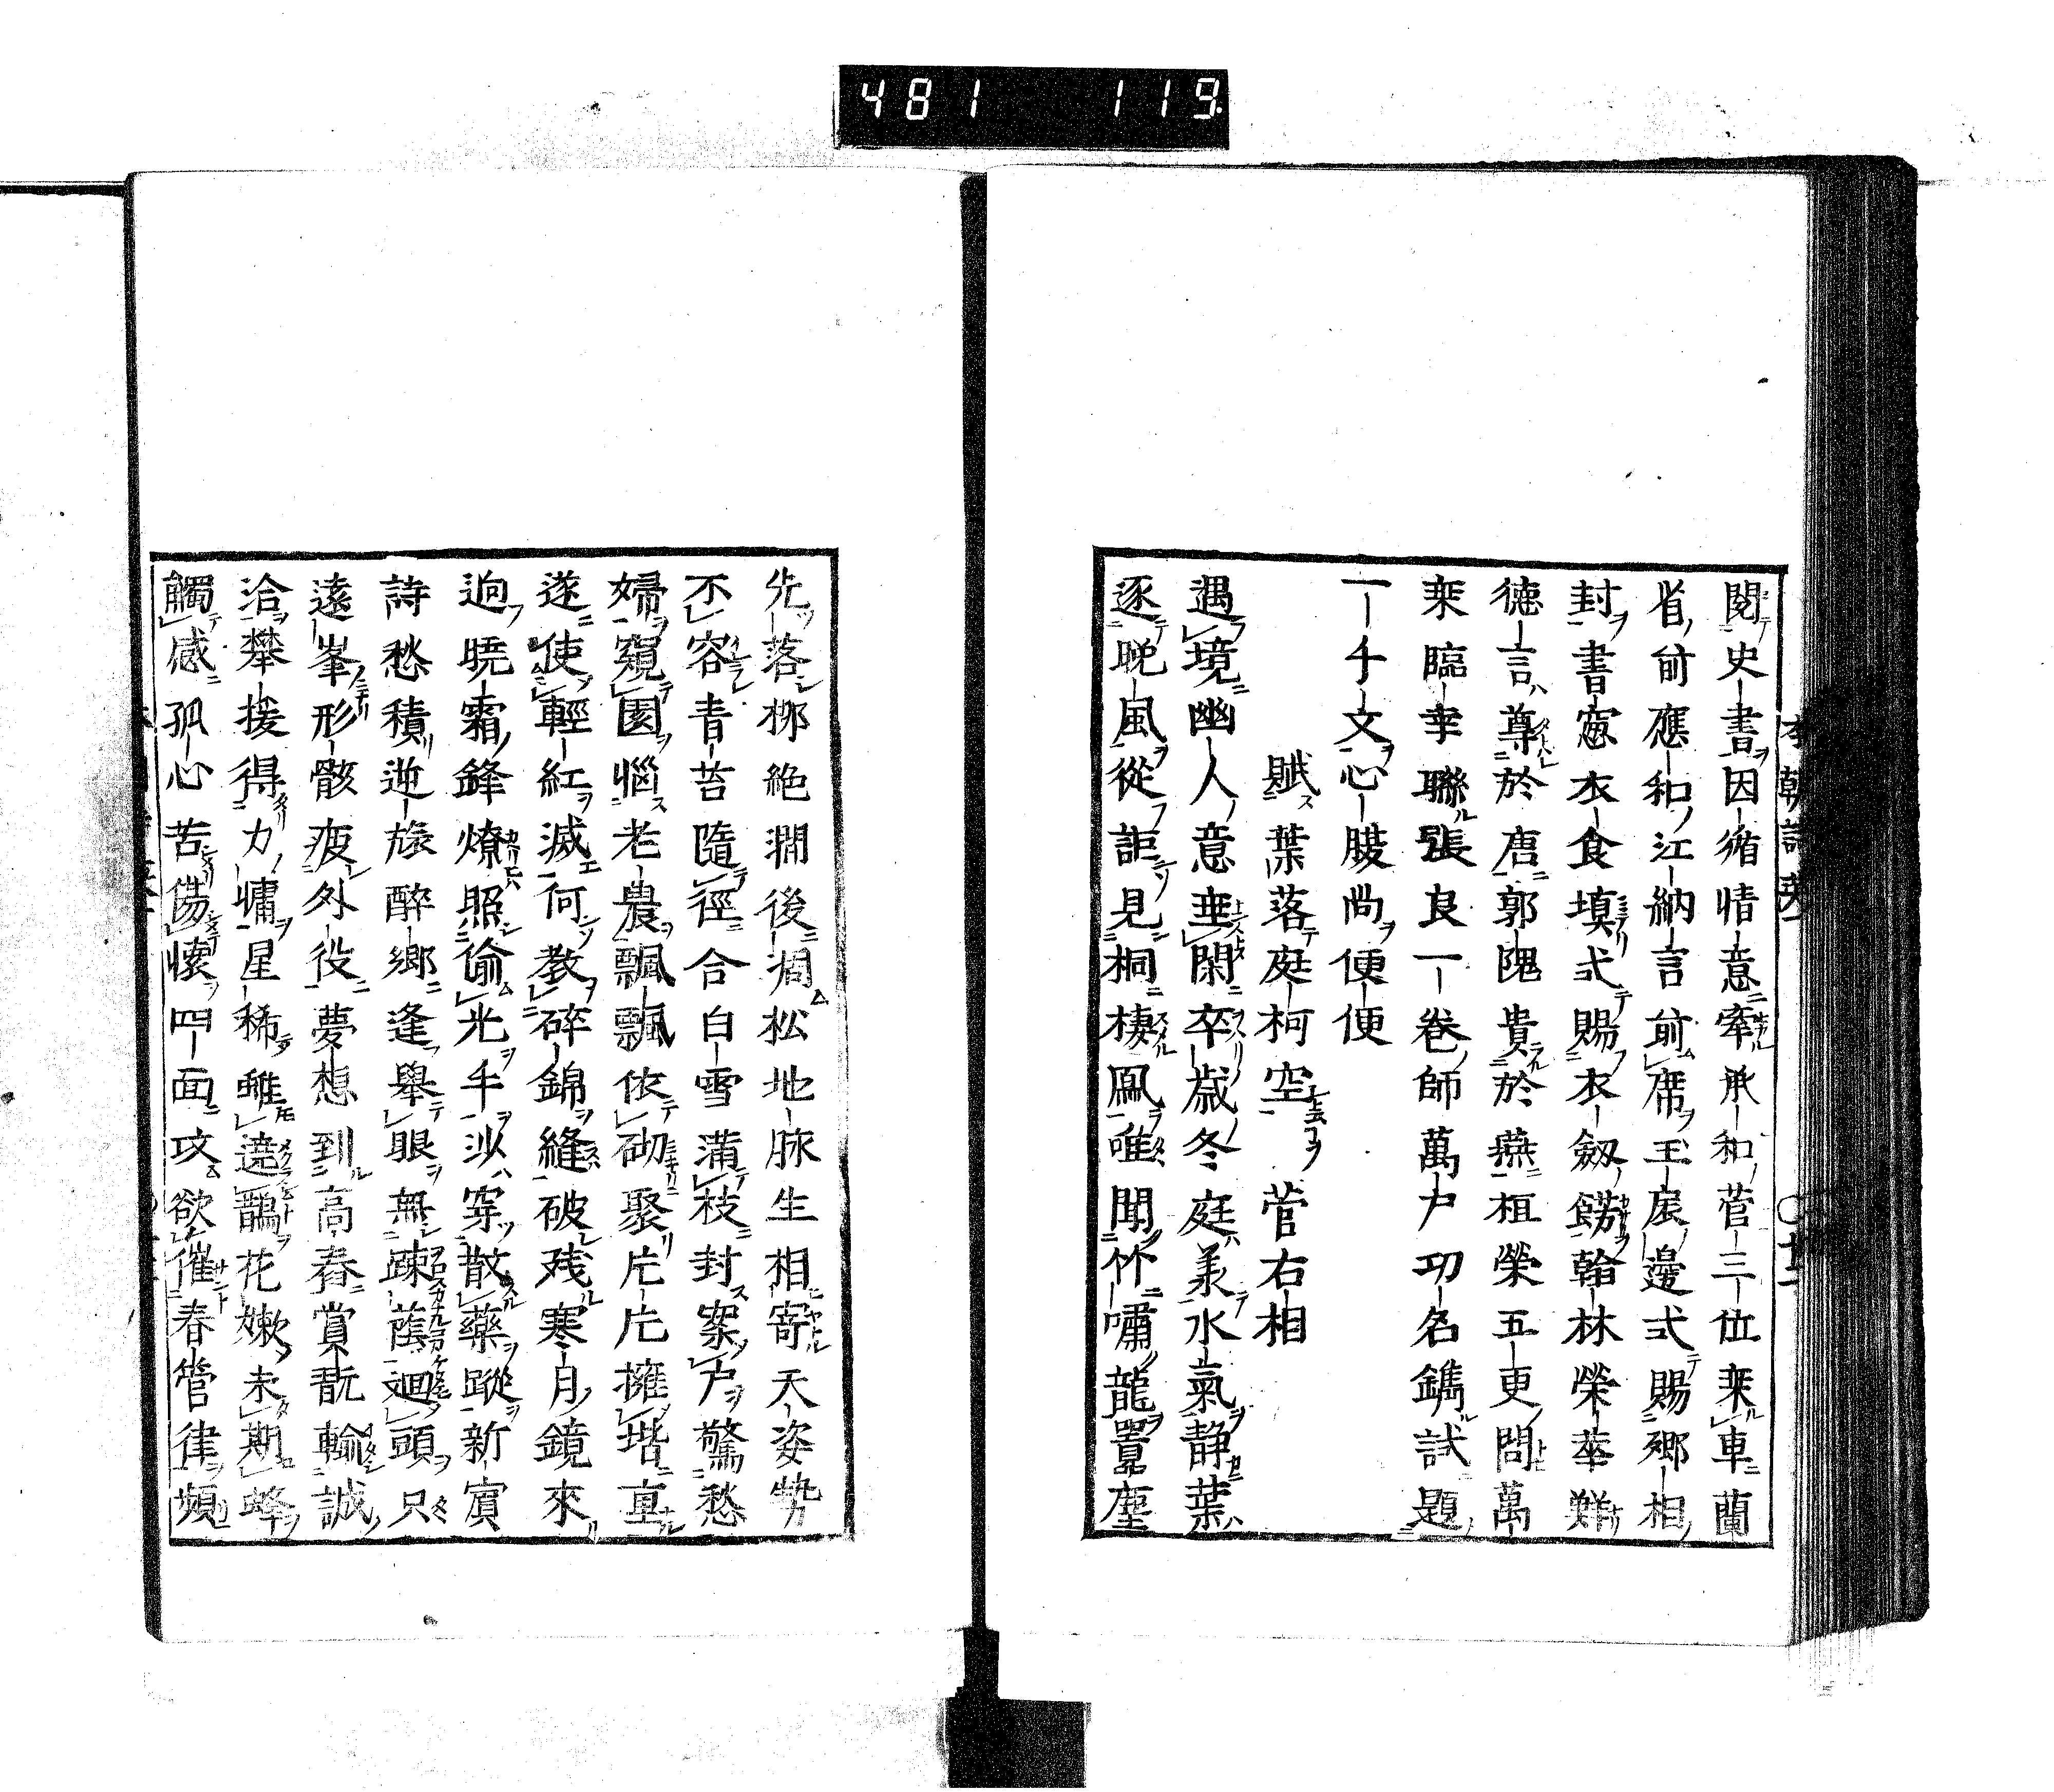 481 119
閲史書因循情意牽承和菅三位乗車蘭
省前應和江納言前席王扆邊弍賜郷相
封書窓衣食填弍賜衣劔餝翰林榮華難
徳言尊於唐郭隗貴於燕桓榮五更問萬
乗臨幸聯張良一卷師萬戸功名鐫試題
一千文心腹尚便便
賦葉落庭柯空 菅右相
遇境幽人意垂閑卒歳冬庭羕水氣静葉
逐晩風從詎見桐棲鳳唯聞竹嘯龍囂塵
先落栁絶澗後凋松地脉生相寄天姿㔟
不容青苔隨徑合白雪滿枝封案戸驚愁
婦窺園惱老農飄飄依砌聚片片擁堦重
遂使輕紅滅何教碎錦縫破残寒月鏡來
逈曉霜鋒燎照偷光手沙穿散藥蹤新賓
詩愁積逆旅醉郷逢舉眼無疎蔭廻頭只
遠峯形骸疲外役夢想到高舂賞翫輸誠
洽攀援得力慵星稀雖遶鵲花嫩未期蜂
觸感孤心苦傷懷四面攻欲催春管律頻